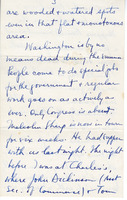 3
are wooded + watered spots
even in that flat + monotonous
area.
Washington is by no
means dead during the summer
People come to do special jobs
for the government + regular
work goes on as actively as
ever. Only Congress is absent.
Malcolm Sharp is now in town
for six weeks. He had supper
with us last night. The night
before I was at Charlie's,
where John Dickinson (Asst
Sec. of Commerce) + Tom